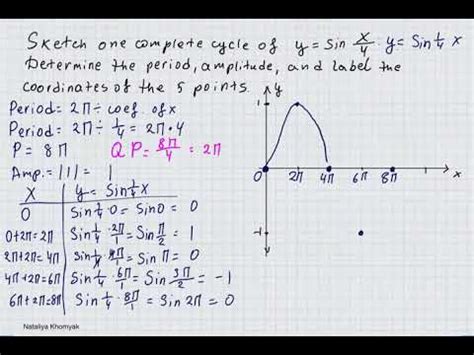 Sketch one complete cycle of y = sin x/4 y = sin 1/4 x
Determine the period, amplitude, and label the
coordinates of the 5 points.
Period = 2π ÷ coef. of x
Period = 2π ÷ 1/4 = 2π · 4
P = 8π QP = 8π/4 = 2π
Amp. = |1| = 1
x y = sin 1/4 x
0 sin 1/4 · 0 = sin 0 = 0
0+2π = 2π sin 1/4 · 2π/1 = sin π/2 = 1
2π+2π = 4π sin 1/4 · 4π/1 = sin π = 0
4π+2π = 6π sin 1/4 · 6π/1 = sin 3π/2 = -1
6π+2π = 8π sin 1/4 · 8π/1 = sin 2π = 0
y
1
0 2π 4π 6π 8π x
-1
Nataliya Khomyak